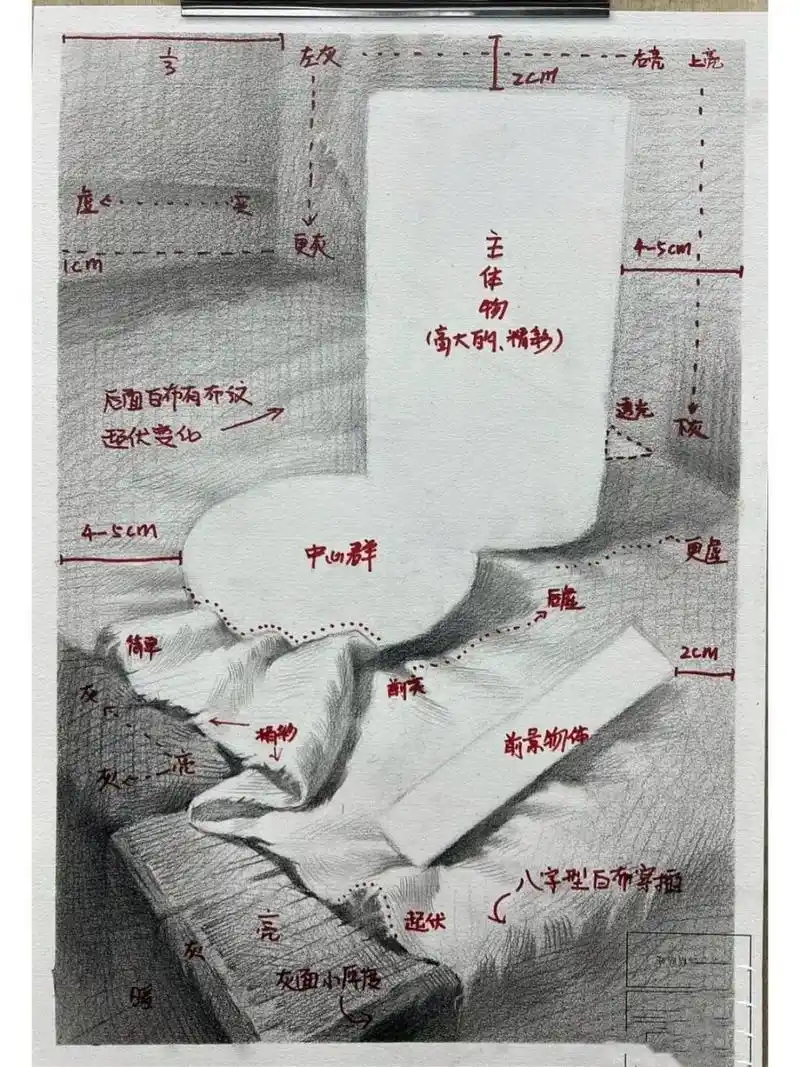 1/3
左灰
右亮
上亮
2cm
虚
实
1cm
更灰
4-5cm
主
体
物
(高大的、精彩)
后面白布有布纹
起伏变化
透光
下灰
4-5cm
中心群
更虚
后虚
简单
前实
2cm
灰
精彩
前景物体
灰
亮
八字型白布穿插
亮
起伏
灰
灰面小厚度
暖